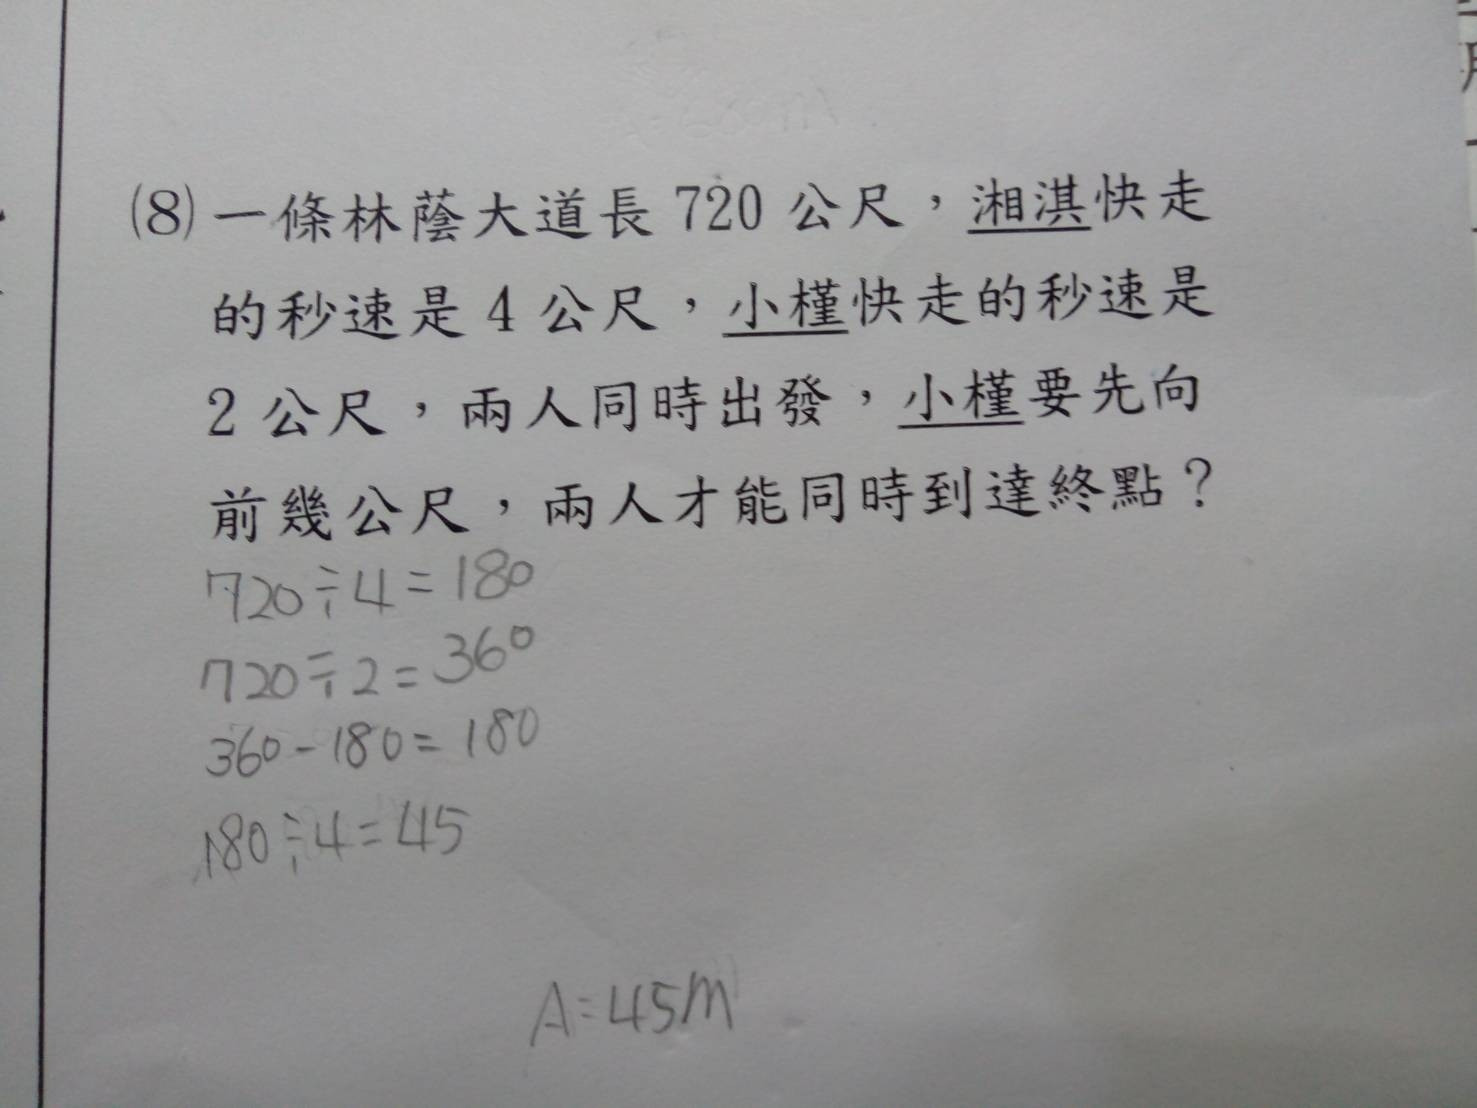 (8) 一條林蔭大道長 720 公尺，湘淇快走
的秒速是 4 公尺，小槿快走的秒速是
2 公尺，兩人同時出發，小槿要先向
前幾公尺，兩人才能同時到達終點？
720÷4=180
720÷2=360
360-180=180
180÷4=45
A=45m